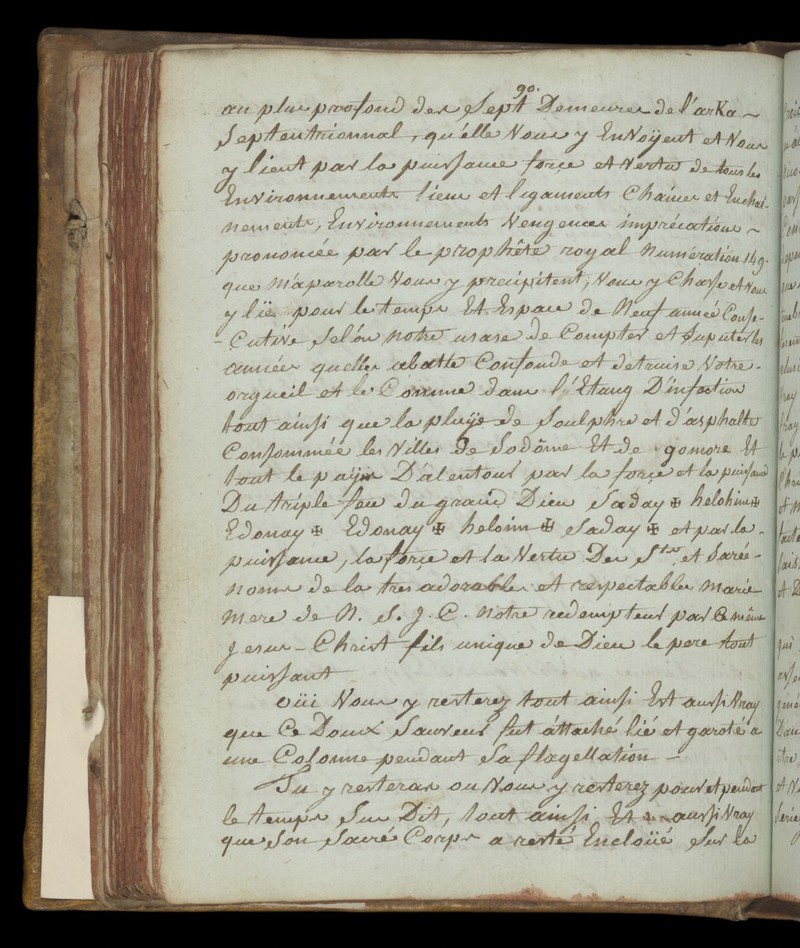 90.
au plus proofond des Sept Demeures de l'arKa ~
Septentrionnal, qu'elle Vous y EnVoÿent et Vous
y lient par la puissance force et Vertu de tous les
Environnements liens et ligaments Chaines et Enchai-
nements, Environnements Vengences imprécations ~
prononcée par le prophête royal Numération 149.
que m'aparolle Vous y précipitent, Vous y Chasse et Vous
y lïe pour le temps Et Espace de Neuf année Conse-
- Cutive Selon notre usase de Compter et Suputer les
années quelles abatte Confonde et detruise Votre -
orgueil et le Comme dans l'Etang D'infection
tout ainsi que la pluÿe de Soulphre et d'asphalte
Consommée les Villes de Sodôme Et de gomore Et
tout le païis D'alentour par la force et la puissance
Du triple feu du grand Dieu Saday ✠ helohim ✠
Edonay ✠ Edonay ✠ heloim ✠ Saday ✠ et par la -
puissance, la force et la Vertu Des Sts. et Sacré -
Noms de la tres adorables et respectables Marie
Mere de N. S. J. C. Notre redempteur par Ce même
Jesus - Christ fils unique de Dieu le pere tout
puissant
oüi Vous y resterez tout ainsi Est aussi Vray
que Ce Doux Sauveur fut attaché lié et garoté a
une Colonne pendant Sa flagellation -
Tu y resteras ou Vous y resterez pour et pendant
le temps Sus Dit, tout ainsi Et aussi Vray
que Son Sacré Corps a resté Encloüé Sur la